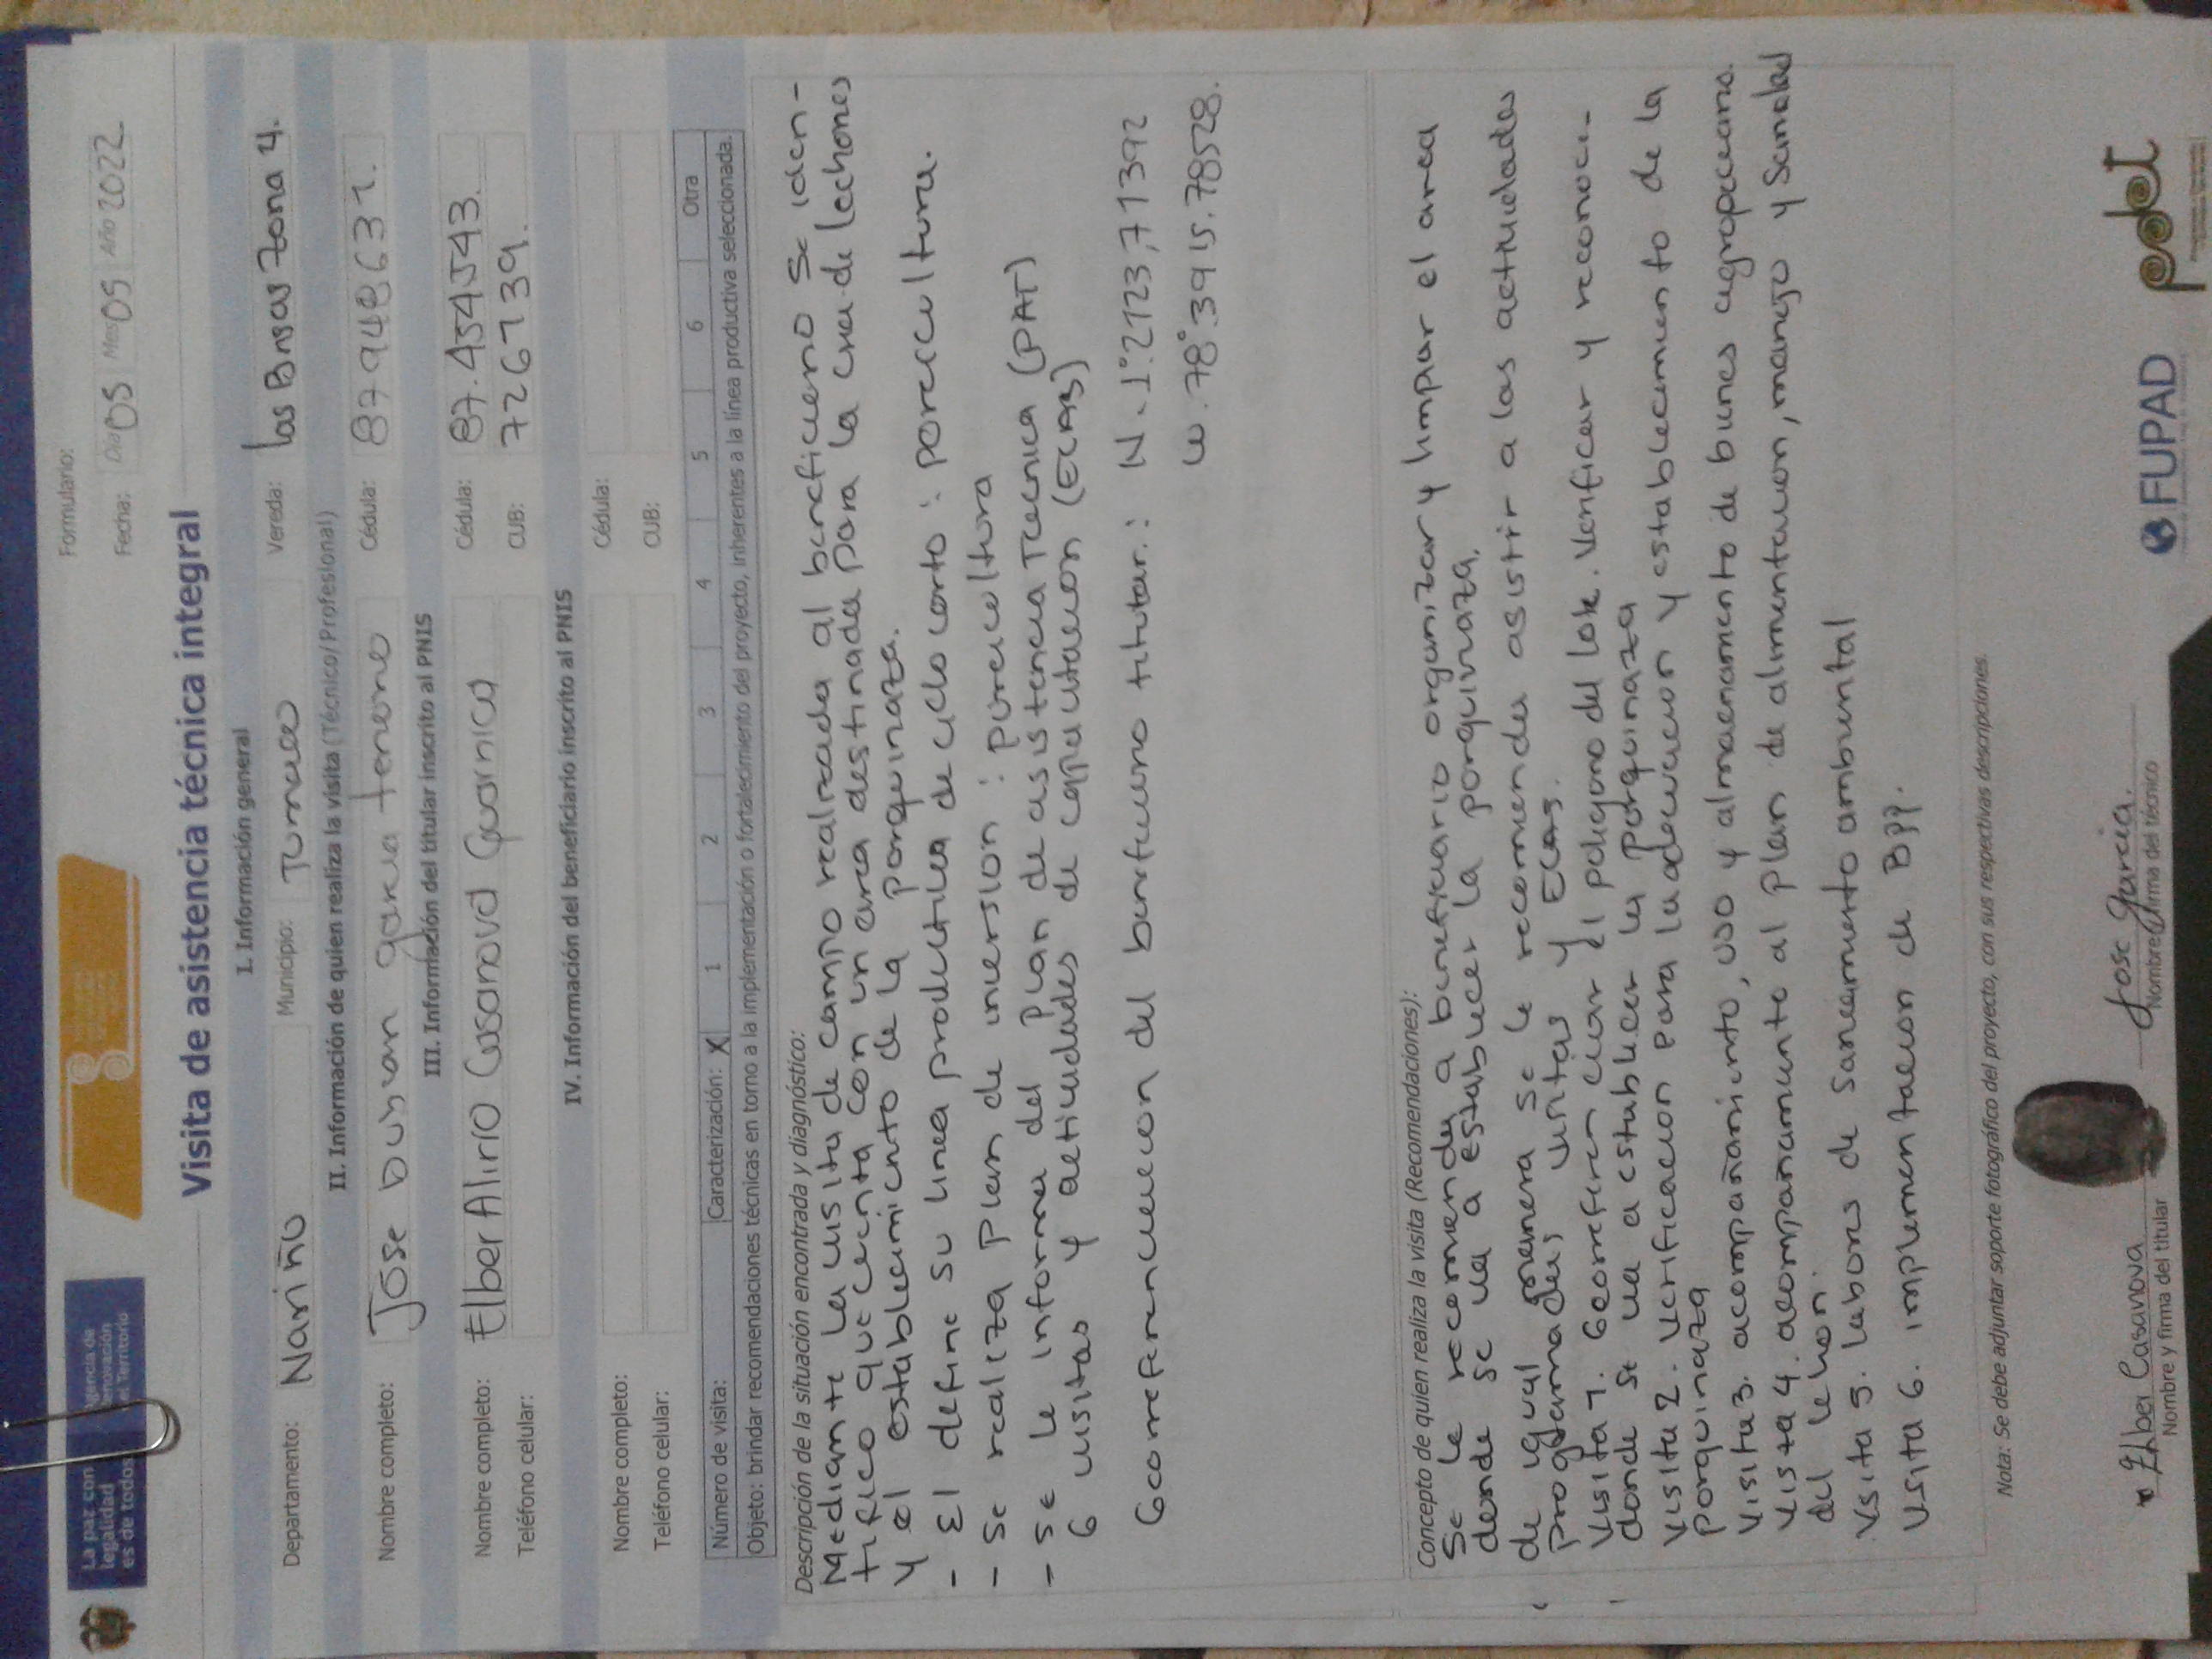 La paz con
legalidad
es de todos
Formulario:
Fecha: Día 05 Mes 05 Año 2022
Visita de asistencia técnica integral
I. Información general
Departamento: Nariño Municipio: Tumaco Vereda: las Brisas Zona 4.
II. Información de quien realiza la visita (Técnico/Profesional)
Nombre completo: Jose duvan garcia tenorio Cédula: 87948631.
III. Información del titular inscrito al PNIS
Nombre completo: Elber Alirio Casanova Guarnica Cédula: 87.454543.
Teléfono celular: CUB: 726739.
IV. Información del beneficiario inscrito al PNIS
Nombre completo: Cédula:
Teléfono celular: CUB:
Número de visita: Caracterización: X 1 2 3 4 5 6 Otra
Objeto: brindar recomendaciones técnicas en torno a la implementación o fortalecimiento del proyecto, inherentes a la línea productiva seleccionada.
Descripción de la situación encontrada y diagnóstico:
Mediante la visita de campo realizada al beneficiario se iden-
tifico que cuenta con un area destinada para la cria de lechones
y el establecimiento de la porquinaza.
- El define su linea productiva de ciclo corto: porcicultura.
- se realiza plan de inversion: porcicultura
- se le informa del plan de asistencia Tecnica (PAT)
6 visitas y actividades de capacitacion (ECAS)
Georreferenciacion del beneficiario titular.: N. 1°.2123,71392
W. 78°.3915.78528.
Concepto de quien realiza la visita (Recomendaciones):
Se le recomienda a beneficiario organizar y limpiar el area
donde se va a establecer la porquinaza.
de igual manera se le recomienda asistir a las actividades
programadas visitas y ECAS.
Visita 1. Georreferenciar el poligono del lote. Verificar y reconoci-
donde se va a establecer la porquinaza
Visita 2. Verificacion para la adecuacion y establecimiento de la
porquinaza
Visita 3. acompañamiento, uso y almacenamiento de bienes agropecuarios.
Visita 4. acompañamiento al plan de alimentacion, manejo y Sanidad
del lechon.
Visita 5. labores de saneamiento ambiental
Visita 6. implementacion de BPP.
Nota: Se debe adjuntar soporte fotográfico del proyecto, con sus respectivas descripciones.
x Elber Casanova
Nombre y firma del titular
Jose Garcia.
Nombre y firma del técnico
FUPAD
pdet